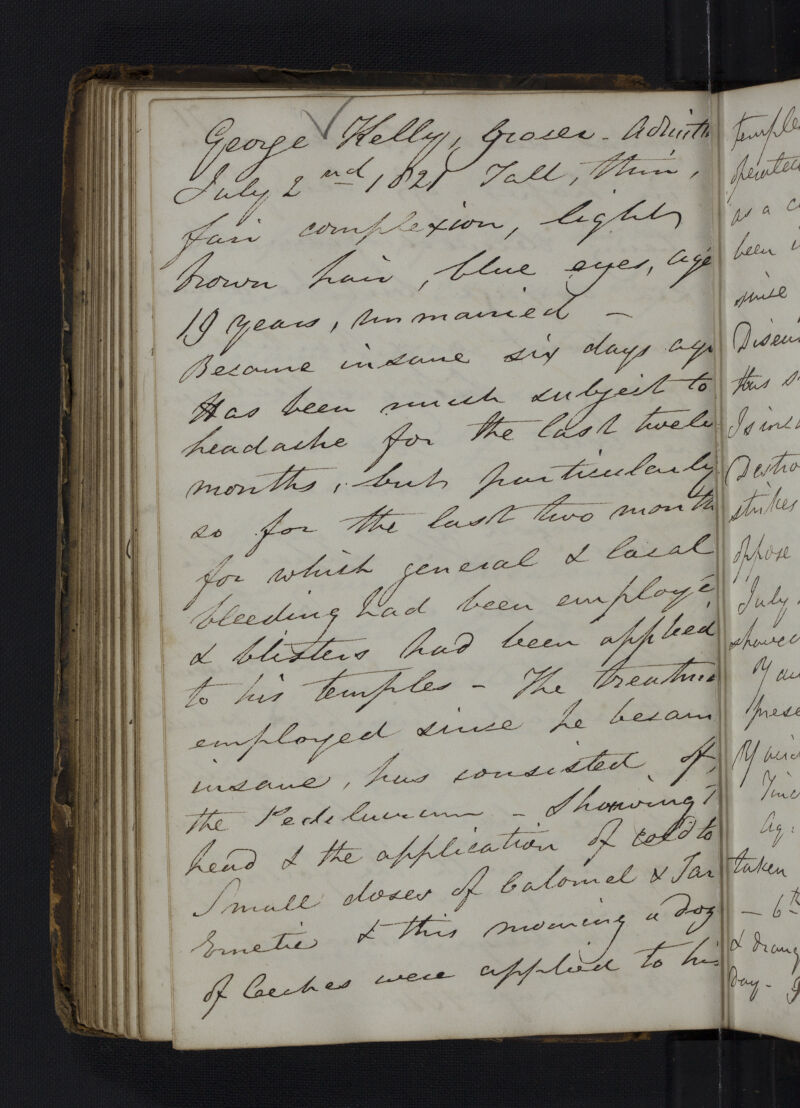 George Kelly, Grocer - Admitt
July 2nd 1821 Tall, thin,
fair complexion, light
brown hair, blue eyes, age
19 years, unmarried -
Became insane six days ago
Has been much subject to
headache for the last twelv
months, but particularly
so for the last two month
for which general & local
bleeding had been employ'd
& blisters had been applied
to his temples - The treatme
employed since he becam
insane, has consisted of,
the Pediluvium - Shaving
head & the application of cold to
Small doses of Calomel & Tar
Emetic & this morning a doz
of leeches were applied to his
temple
operated
as a
been
since
Disea
thus
Destro
strikes
oppose
July
shaved
prese
taken
- 6th
& draug
day -